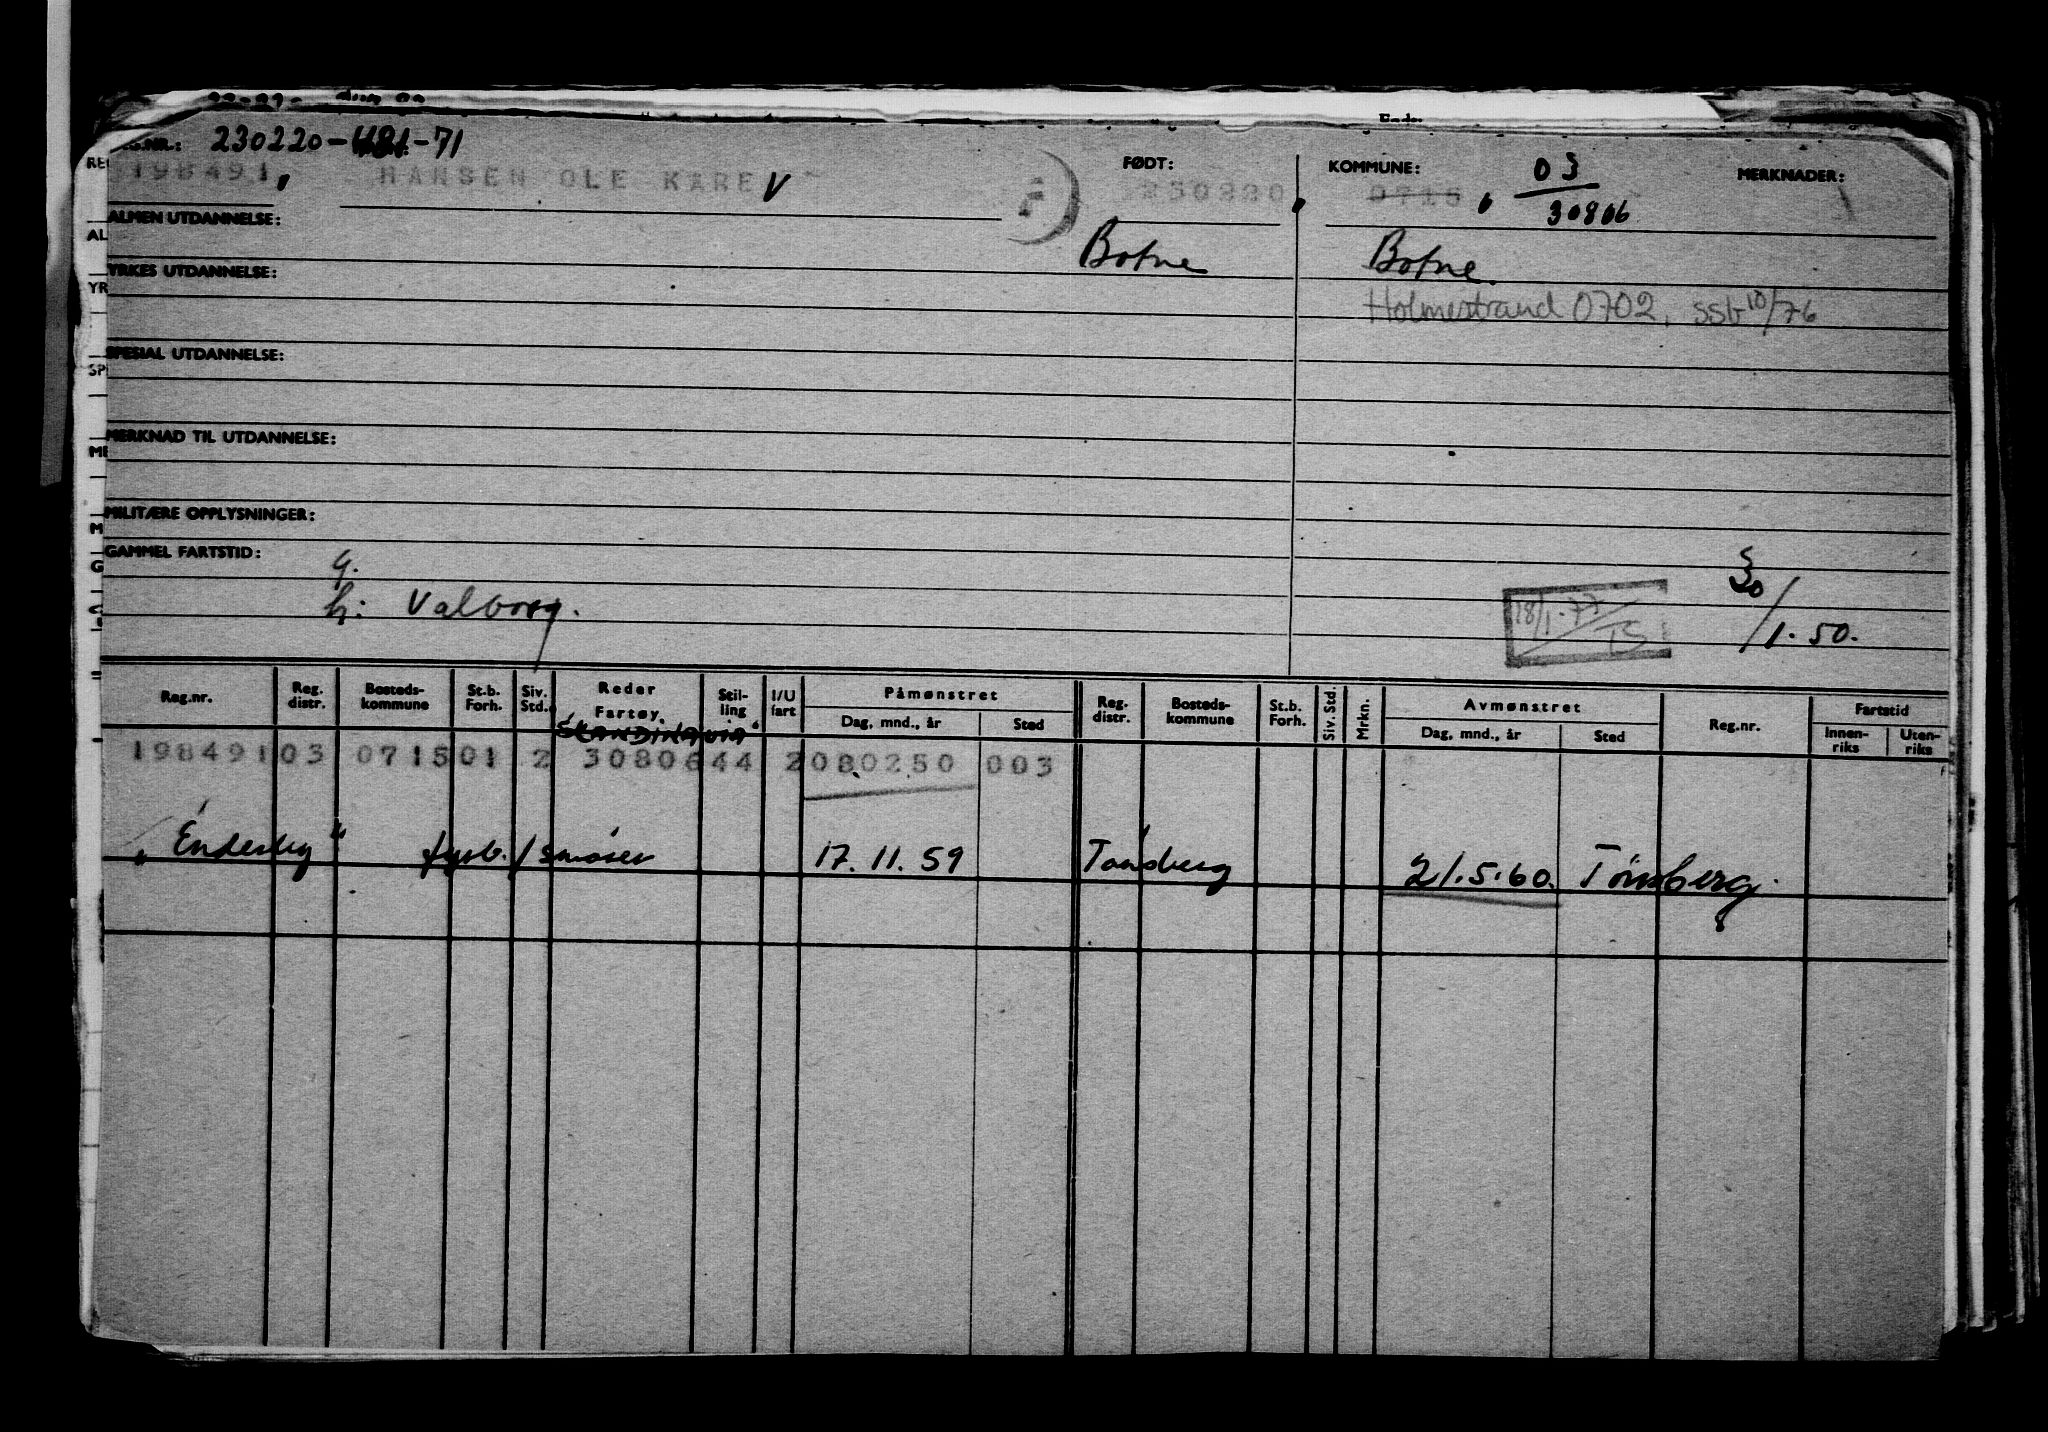 230220-481-71
REG.NR.: FØDT: KOMMUNE: 03 MERKNADER:
198491, HANSEN OLE KÅRE V 230220, 0715, 30806
ALMEN UTDANNELSE:
Botne Botne
YRKES UTDANNELSE:
Holmestrand 0702, SSb 10/76
SPESIAL UTDANNELSE:
MERKNAD TIL UTDANNELSE:
MILITÆRE OPPLYSNINGER:
GAMMEL FARTSTID:
g.
h: Valborg.
18/1.77
30/1.50.
Reg.nr. Reg. distr. Bosteds-kommune St.b. Forh. Siv. Std. Reder Fartøy. Stil-ling I/U fart Påmønstret Dag, mnd., år Sted Reg. distr. Bosteds-kommune St.b. Forh. Siv. Std. Mrkn. Avmønstret Dag, mnd., år Sted Reg.nr. Fartstid Innen-riks Uten-riks
SKANDINAVIA
198491 03 0715 01 2 30806 44 2 080250 003
"Enderby" fyrb./smører 17.11.59 Tønsberg 21.5.60. Tønsberg.